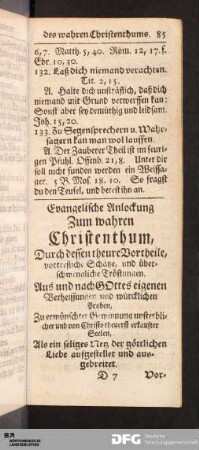 des wahren Christenthums. 85
6, 7. Matth. 5, 40. Röm. 12, 17. f.
Ebr. 10, 30.
132. Laß dich niemand verachten.
Tit. 2, 15.
A. Halte dich unsträflich, daß dich
niemand mit Grund verwerffen kan:
Sonst aber sey demüthig und leidsam.
Joh. 15, 20.
133. Zu Segensprechern u. Wahr-
sagern kan man wol lauffen.
A. Der Zauberer Theil ist im feuri-
gen Pfuhl. Offenb. 21, 8. Unter dir
soll nicht funden werden ein Weissa-
ger. 5 B. Mos. 18. 10. So fragst
du den Teufel, und betest ihn an.
Evangelische Anlockung
Zum wahren
Christenthum,
Durch dessen theure Vortheile,
vortrefliche Schätze, und über-
schwengliche Tröstungen.
Aus und nach GOttes eigenen
Verheissungen und würcklichen
Proben,
Zu erwünschter Gewinnung unsterb-
licher und von Christo theuerst erkaufter
Seelen,
Als ein seliges Netz der göttlichen
Liebe aufgestellet und aus-
gebreitet.
D 7 Vor-
DFG Deutsche
Forschungsgemeinschaft